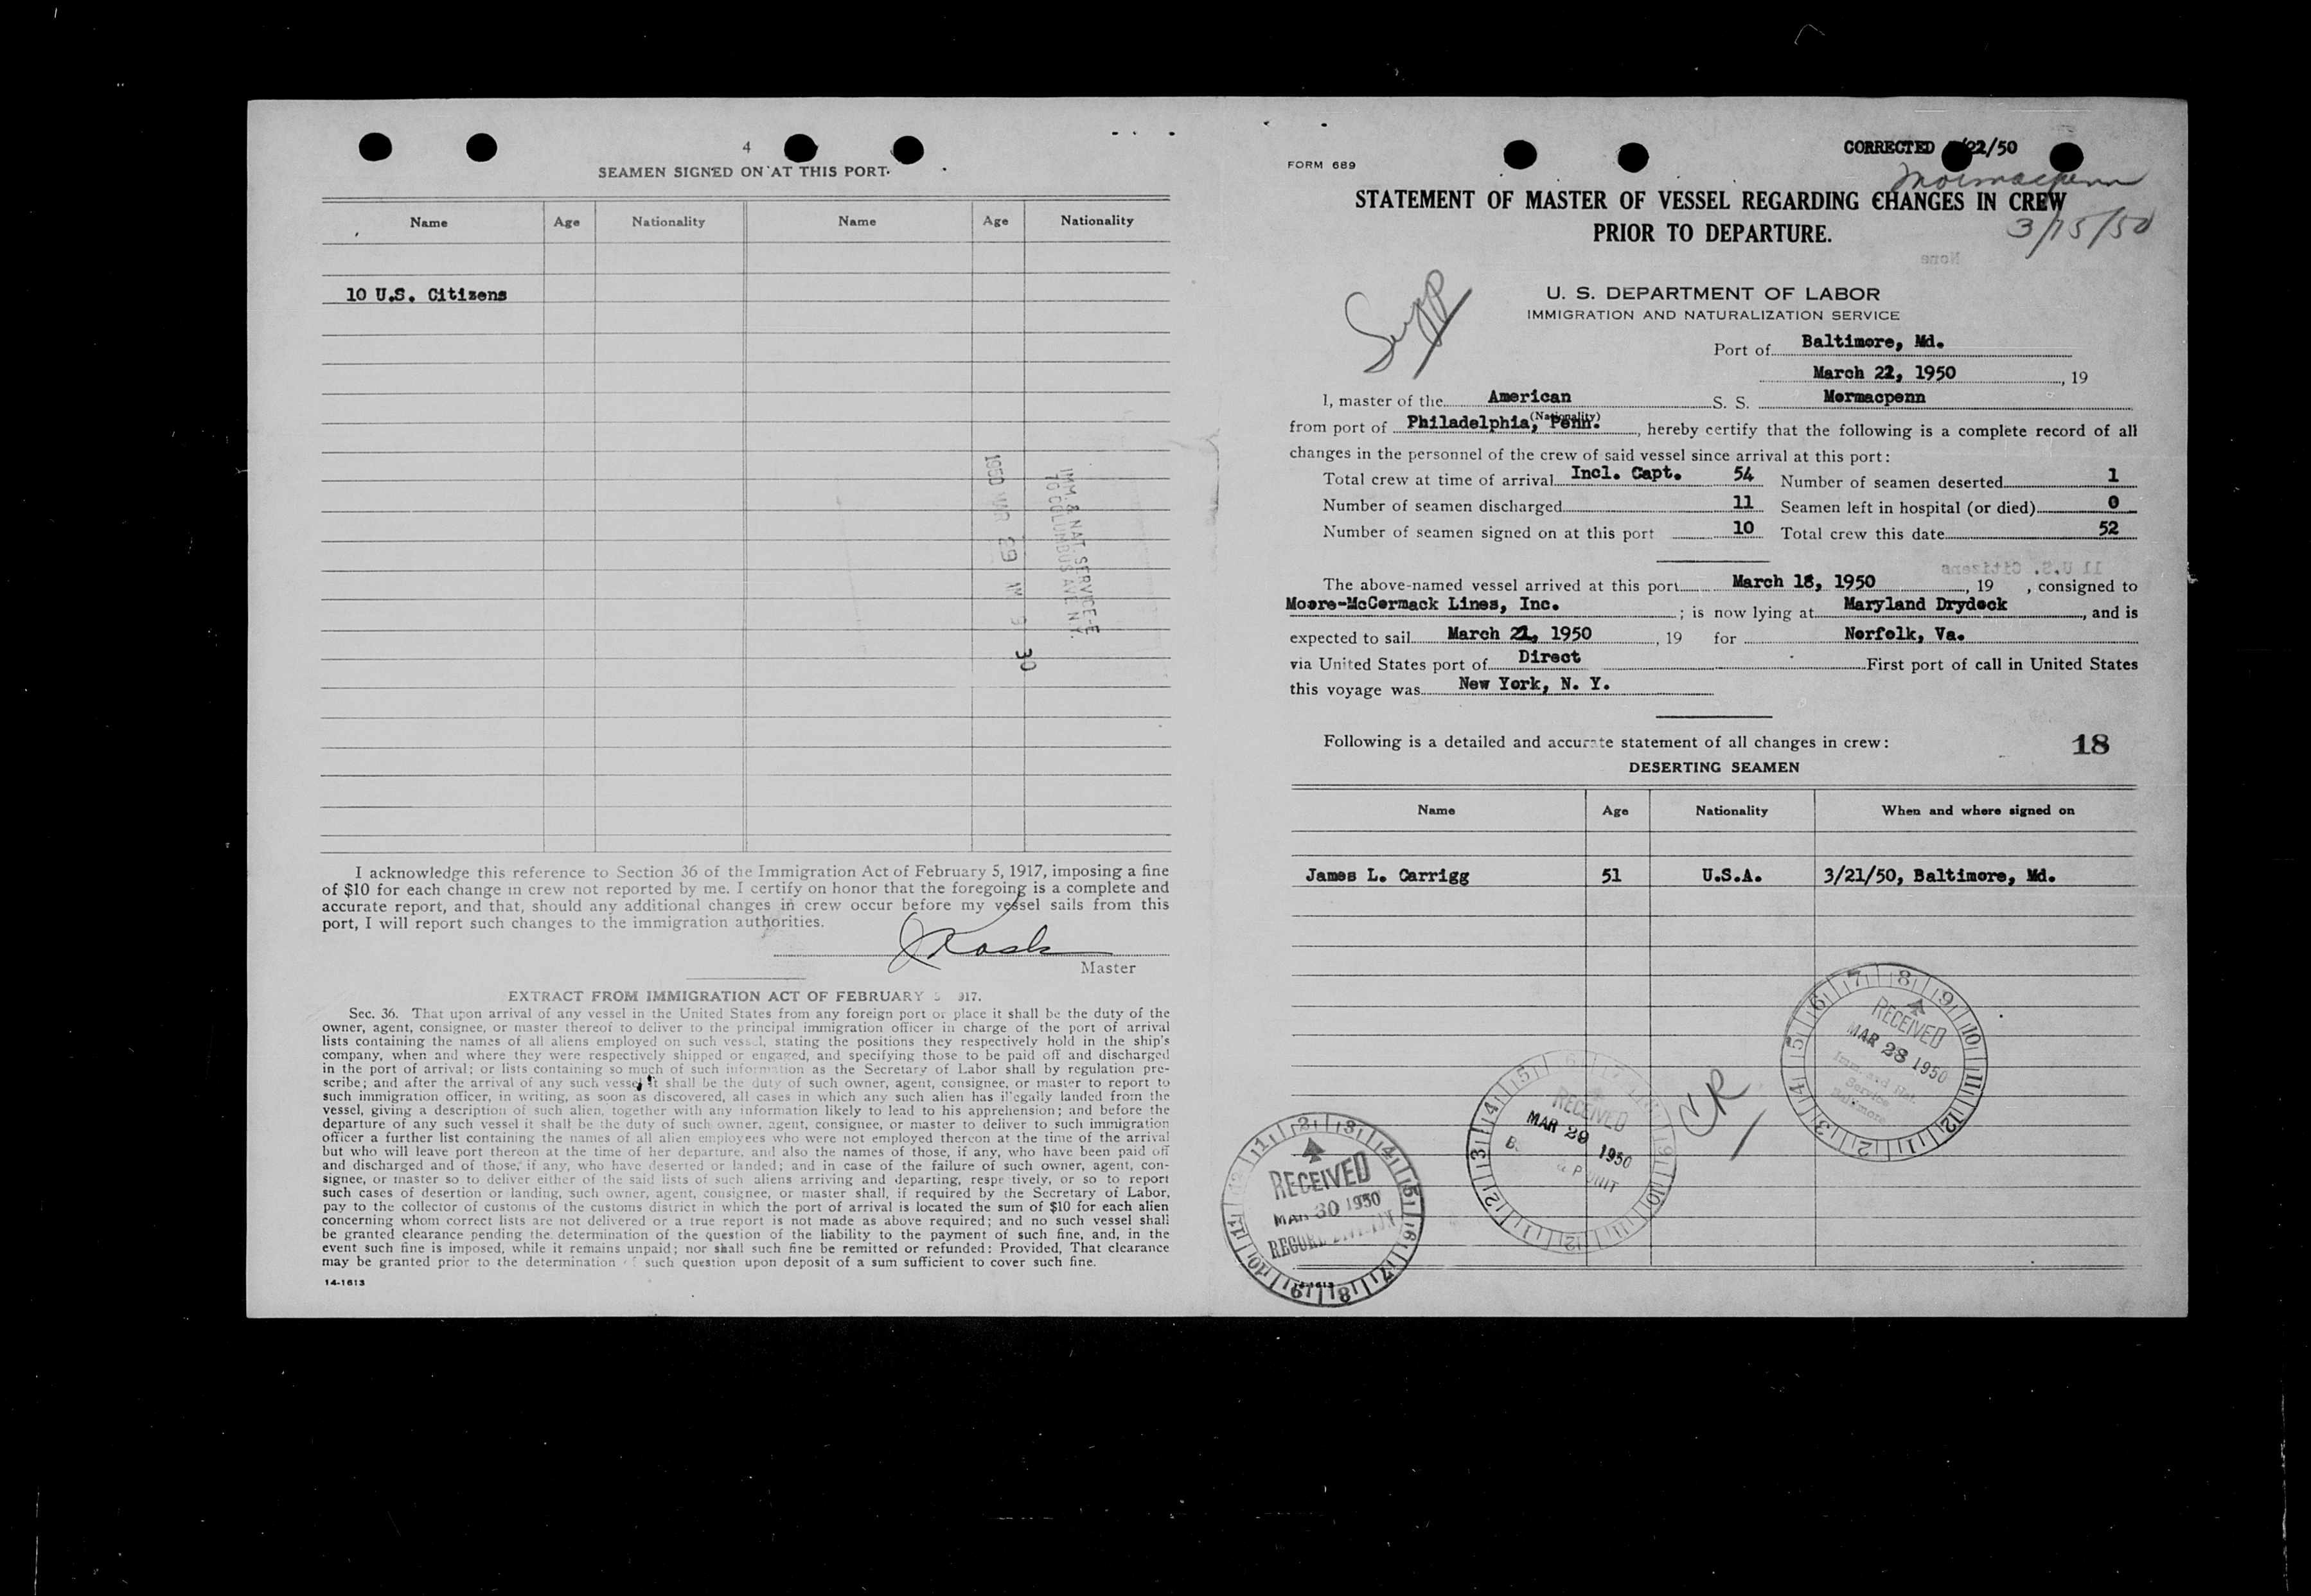 4
SEAMEN SIGNED ON AT THIS PORT.
Name Age Nationality Name Age Nationality
10 U.S. Citizens
IMM. & NAT. SERVICE-E
70 COLUMBUS AVE N.Y.
1950 MAR 29 9 30
I acknowledge this reference to Section 36 of the Immigration Act of February 5, 1917, imposing a fine
of $10 for each change in crew not reported by me. I certify on honor that the foregoing is a complete and
accurate report, and that, should any additional changes in crew occur before my vessel sails from this
port, I will report such changes to the immigration authorities.
Master
EXTRACT FROM IMMIGRATION ACT OF FEBRUARY 5 917.
Sec. 36. That upon arrival of any vessel in the United States from any foreign port or place it shall be the duty of the
owner, agent, consignee, or master thereof to deliver to the principal immigration officer in charge of the port of arrival
lists containing the names of all aliens employed on such vessel, stating the positions they respectively hold in the ship's
company, when and where they were respectively shipped or engaged, and specifying those to be paid off and discharged
in the port of arrival; or lists containing so much of such information as the Secretary of Labor shall by regulation pre-
scribe; and after the arrival of any such vessel it shall be the duty of such owner, agent, consignee, or master to report to
such immigration officer, in writing, as soon as discovered, all cases in which any such alien has illegally landed from the
vessel, giving a description of such alien, together with any information likely to lead to his apprehension; and before the
departure of any such vessel it shall be the duty of such owner, agent, consignee, or master to deliver to such immigration
officer a further list containing the names of all alien employees who were not employed thereon at the time of the arrival
but who will leave port thereon at the time of her departure, and also the names of those, if any, who have been paid off
and discharged and of those, if any, who have deserted or landed; and in case of the failure of such owner, agent, con-
signee, or master so to deliver either of the said lists of such aliens arriving and departing, respectively, or so to report
such cases of desertion or landing, such owner, agent, consignee, or master shall, if required by the Secretary of Labor,
pay to the collector of customs of the customs district in which the port of arrival is located the sum of $10 for each alien
concerning whom correct lists are not delivered or a true report is not made as above required; and no such vessel shall
be granted clearance pending the determination of the question of the liability to the payment of such fine, and, in the
event such fine is imposed, while it remains unpaid; nor shall such fine be remitted or refunded: Provided, That clearance
may be granted prior to the determination of such question upon deposit of a sum sufficient to cover such fine.
14-1613
FORM 689
CORRECTED /22/50
Mormacpenn
STATEMENT OF MASTER OF VESSEL REGARDING CHANGES IN CREW
PRIOR TO DEPARTURE.
3/15/50
None
Supp
U. S. DEPARTMENT OF LABOR
IMMIGRATION AND NATURALIZATION SERVICE
Port of Baltimore, Md.
March 22, 1950, 19
I, master of the American S. S. Mormacpenn
(Nationality)
from port of Philadelphia, Penn., hereby certify that the following is a complete record of all
changes in the personnel of the crew of said vessel since arrival at this port:
Total crew at time of arrival Incl. Capt. 54 Number of seamen deserted 1
Number of seamen discharged 11 Seamen left in hospital (or died) 0
Number of seamen signed on at this port 10 Total crew this date 52
11 U.S. Citizens
The above-named vessel arrived at this port March 18, 1950, 19 , consigned to
Moore-McCormack Lines, Inc.; is now lying at Maryland Drydock, and is
expected to sail March 21, 1950, 19 for Norfolk, Va.
via United States port of Direct First port of call in United States
this voyage was New York, N. Y.
Following is a detailed and accurate statement of all changes in crew: 18
DESERTING SEAMEN
Name Age Nationality When and where signed on
James L. Carrigg 51 U.S.A. 3/21/50, Baltimore, Md.
RECEIVED
MAR 28 1950
Imm. and Nat.
Service
Baltimore
RECEIVED
MAR 29 1950
& P UNIT
RECEIVED
MAR 30 1950